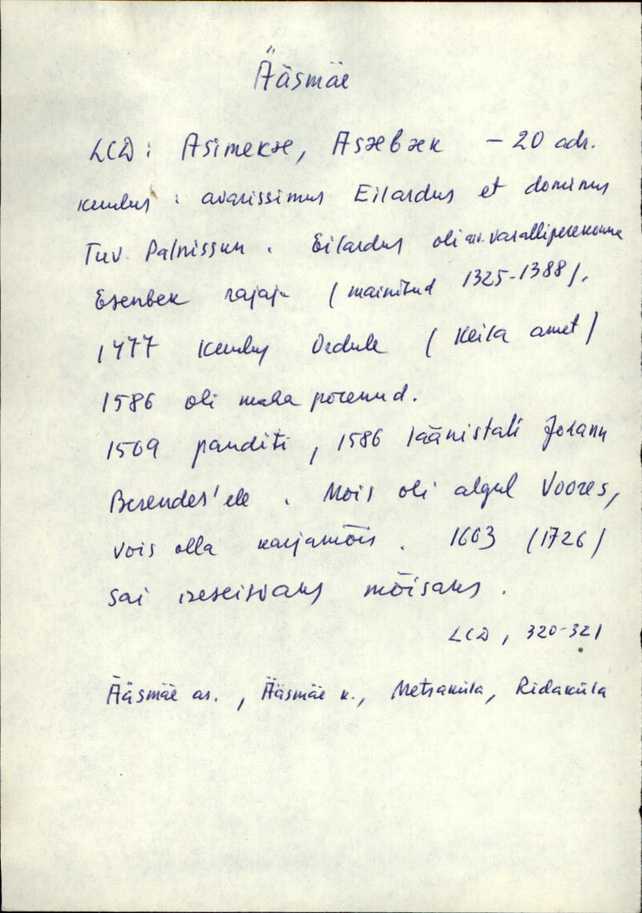 Ääsmäe
LCD: Asimekæ, Asæbæk – 20 adr.
kuulus : avarissimus Eilardus et dominus
Tuv. Palnissun. Eilardus oli vasalliperekonna
Esenbek rajaja (mainitud 1325-1388).
1477 kuulus Ordule (Keila amet)
1586 oli maha põlenud.
1569 panditi, 1586 läänistati Johann
Berendes'ele. Mois oli algul Voores,
vois olla karjamõis. 1663 (1726)
sai iseseisvaks mõisaks.
LCD, 320-321
Ääsmäe as., Ääsmäe k., Metsaküla, Ridaküla